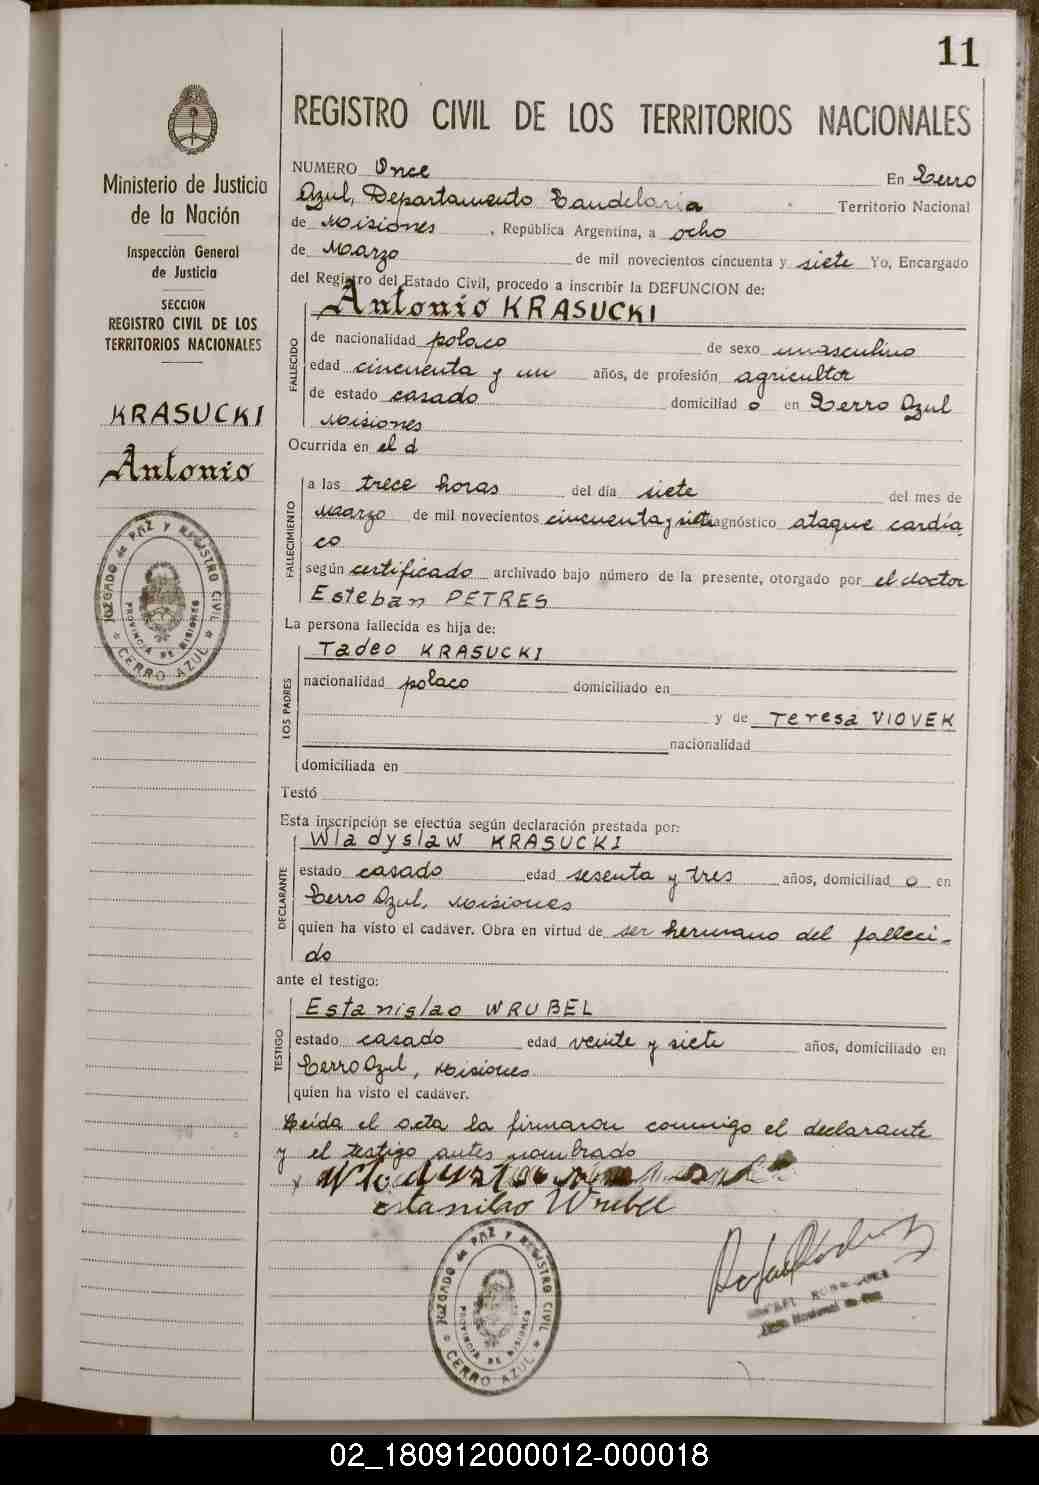 11
Ministerio de Justicia
de la Nación
Inspección General
de Justicia
SECCION
REGISTRO CIVIL DE LOS
TERRITORIOS NACIONALES
KRASUCKI
Antonio
JUZGADO de PAZ Y REGISTRO CIVIL
PROVINCIA DE MISIONES
* CERRO AZUL *
REGISTRO CIVIL DE LOS TERRITORIOS NACIONALES
NUMERO Once En Cerro
Azul, Departamento Candelaria Territorio Nacional
de Misiones, República Argentina, a ocho
de Marzo de mil novecientos cincuenta y siete Yo, Encargado
del Registro del Estado Civil, procedo a inscribir la DEFUNCION de:
Antonio KRASUCKI
FALLECIDO
de nacionalidad polaco de sexo masculino
edad cincuenta y un años, de profesión agricultor
de estado casado domiciliad o en Cerro Azul
Misiones
Ocurrida en el d
FALLECIMIENTO
a las trece horas del día siete del mes de
Marzo de mil novecientos cincuenta y siete diagnóstico ataque cardía
co
según certificado archivado bajo número de la presente, otorgado por el doctor
Esteban PETRES
La persona fallecida es hija de:
Tadeo KRASUCKI
LOS PADRES
nacionalidad polaco domiciliado en
y de Teresa VIOVEK
nacionalidad
domiciliada en
Testó
Esta inscripción se efectúa según declaración prestada por:
Wladyslaw KRASUCKI
DECLARANTE
estado casado edad sesenta y tres años, domiciliad o en
Cerro Azul, Misiones
quien ha visto el cadáver. Obra en virtud de ser hermano del falleci-
do
ante el testigo:
Estanislao WRUBEL
TESTIGO
estado casado edad veinte y siete años, domiciliado en
Cerro Azul, Misiones
quien ha visto el cadáver.
Leída el acta la firmaron conmigo el declarante
y el testigo antes nombrado
Estanilao Wrubel
JUZGADO de PAZ Y REGISTRO CIVIL
PROVINCIA DE MISIONES
* CERRO AZUL *
02_180912000012-000018